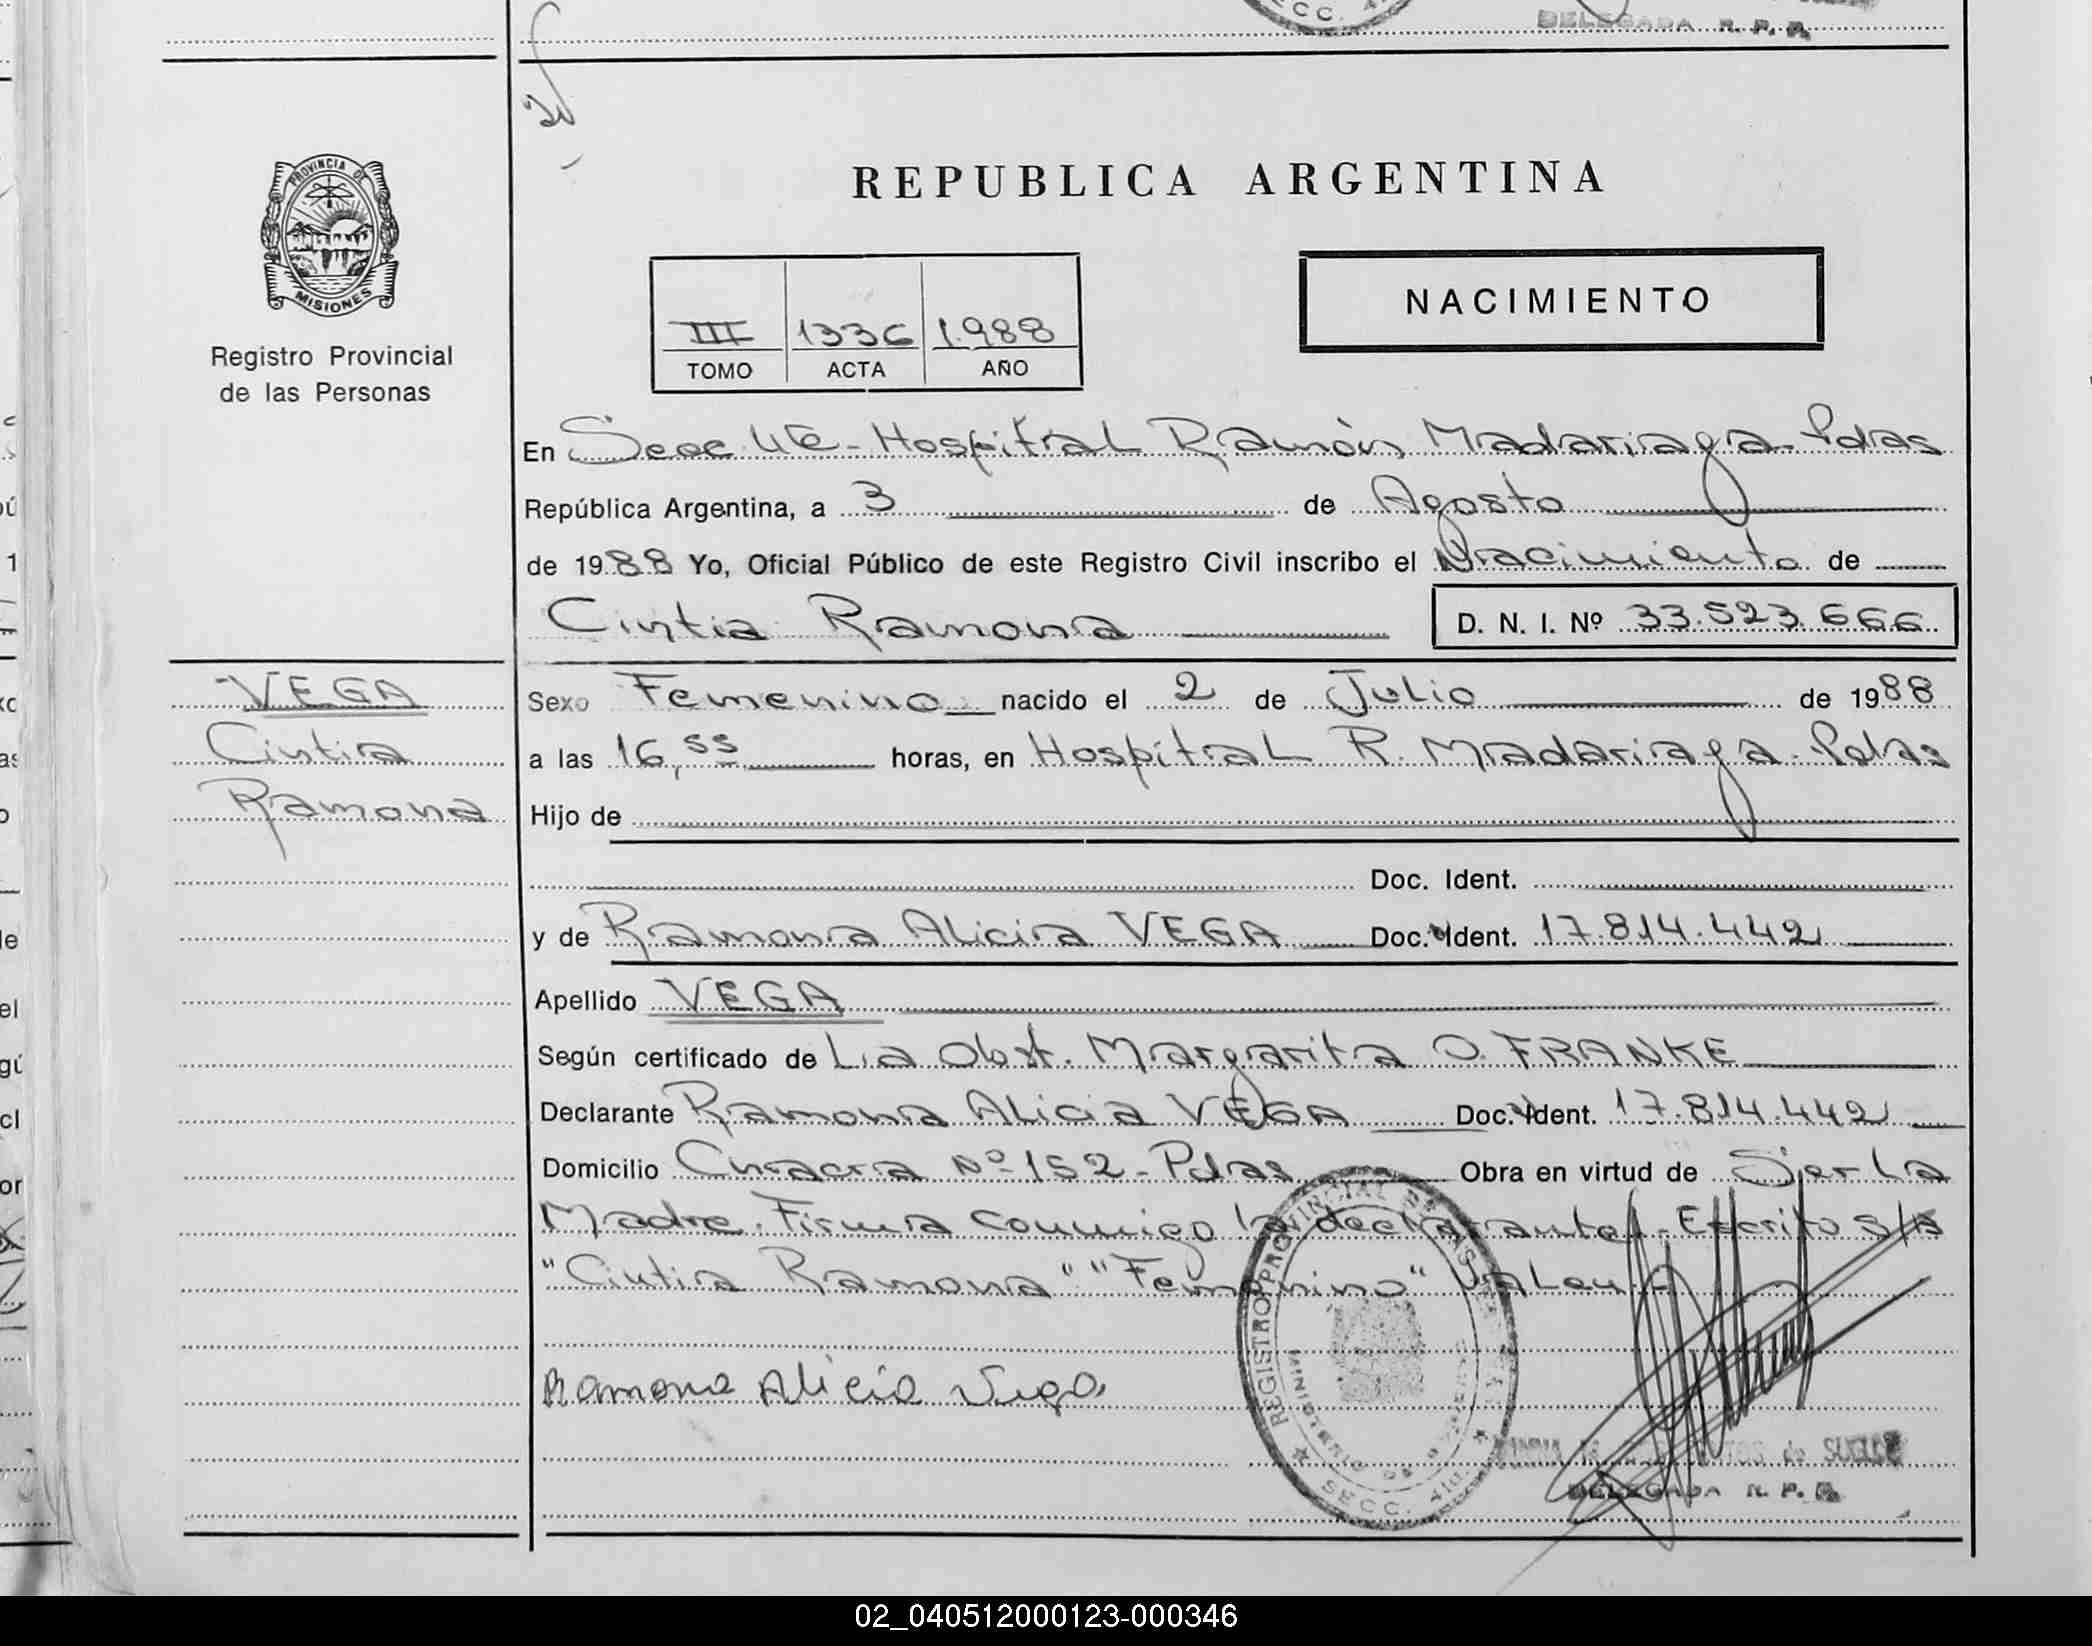 SECC. 4
DELEGADA R. P. P.
PROVINCIA DE
MISIONES
Registro Provincial
de las Personas
REPUBLICA ARGENTINA
III 1336 1.988
TOMO ACTA AÑO
NACIMIENTO
En Secc. 4ta - Hospital Ramón Madariaga - Pdas
República Argentina, a 3 de Agosto
de 1988 Yo, Oficial Público de este Registro Civil inscribo el Nacimiento de
Cintia Ramona D. N. I. Nº 33.523.666
VEGA
Cintia
Ramona
Sexo Femenino nacido el 2 de Julio de 1988
a las 16,55 horas, en Hospital R. Madariaga - Pdas
Hijo de
Doc. Ident.
y de Ramona Alicia VEGA Doc. Ident. 17.814.442
Apellido VEGA
Según certificado de La Obst. Margarita O. FRANKE
Declarante Ramona Alicia VEGA Doc. Ident. 17.814.442
Domicilio Chacra Nº 152 - Pdas Obra en virtud de Ser La
Madre. Firma conmigo la declarante. - Escrito s/r
"Cintia Ramona" "Femenino" VALEN. -
Ramona Alicia Vega
REGISTRO PROVINCIAL DE LAS
MINISTERIO DE GOBIERNO
SECC. 4ta.
DELEGADA R. P. P.
02_040512000123-000346